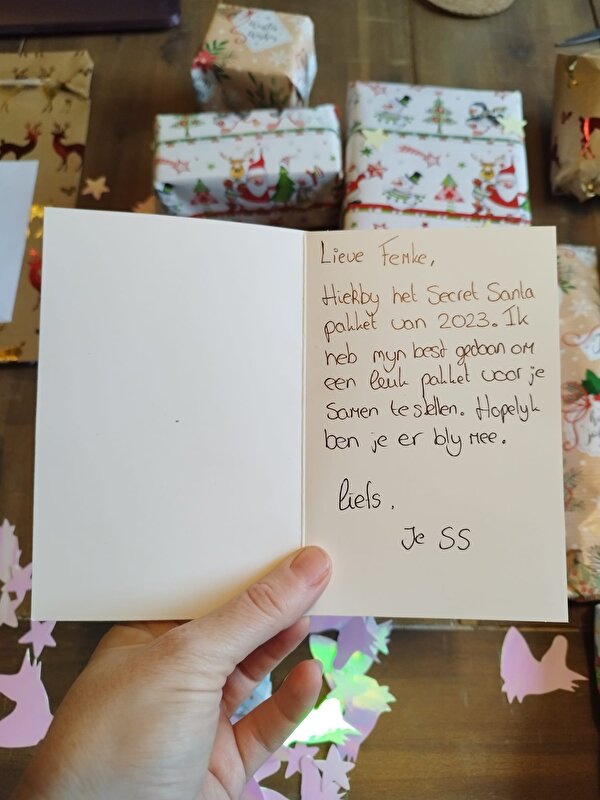 Lieve Femke,
Hierby het Secret Santa
pakket van 2023. Ik
heb myn best gedaan om
een leuk pakket voor je
samen te stellen. Hopelyk
ben je er bly mee.
liefs.
Je SS